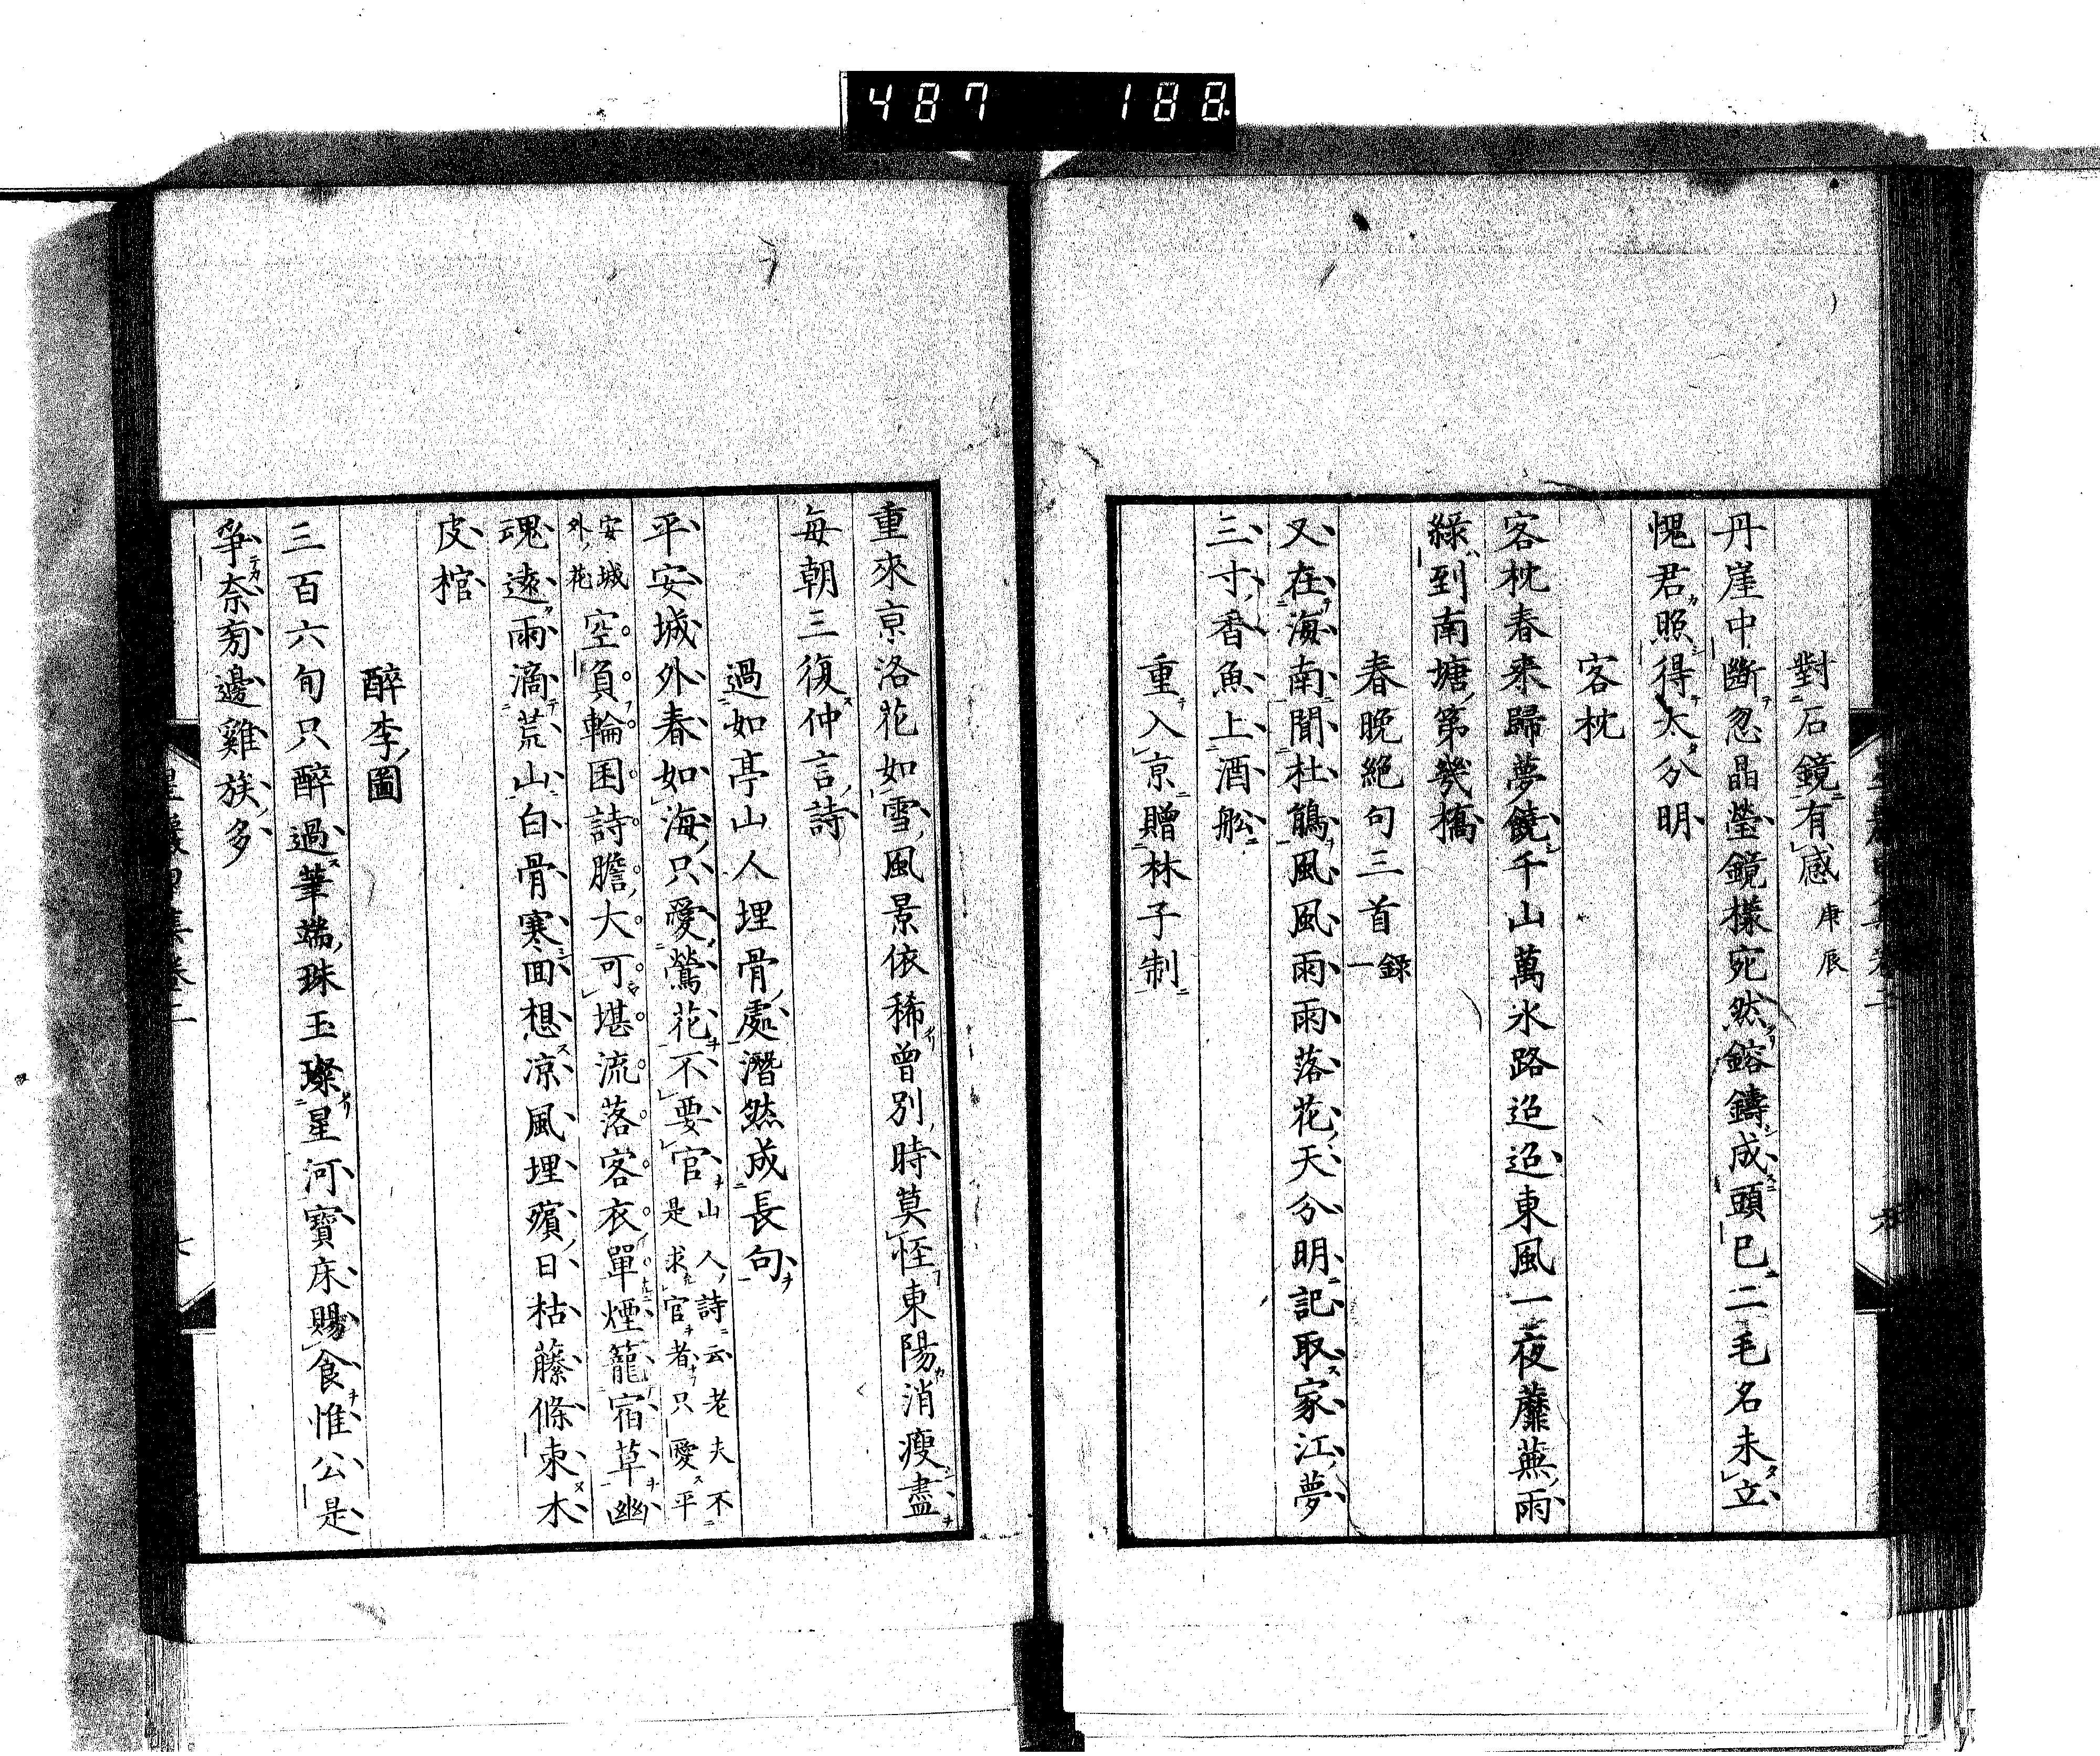 487 188
對石鏡有感 庚辰
丹崖中斷忽晶瑩鏡樣宛然鎔鑄成頭已二毛名未立
愧君照得太分明
客枕
客枕春来歸夢饒千山萬水路迢迢東風一夜蘼蕪雨
綠到南塘第幾橋
春晚絶句三首 錄一
又在海南聞杜鵑風風雨雨落花天分明記取家江夢
三寸香魚上酒舩
重入京贈林子制
重來京洛花如雪風景依稀曾別時莫怪東陽消瘦盡
每朝三復仲言詩
過如亭山人埋骨處潛然成長句
平安城外春如海只愛鶯花不要官 山人詩云老夫不是求官者只愛平
安城外花 空負輪囷詩膽大可堪流落客衣單煙籠宿草幽
魂遠雨滴荒山白骨寒面想凉風埋殯日枯藤條束木
皮棺
醉李圖
三百六旬只醉過筆端珠玉璨星河寶床賜食惟公是
爭奈旁邊雞族多